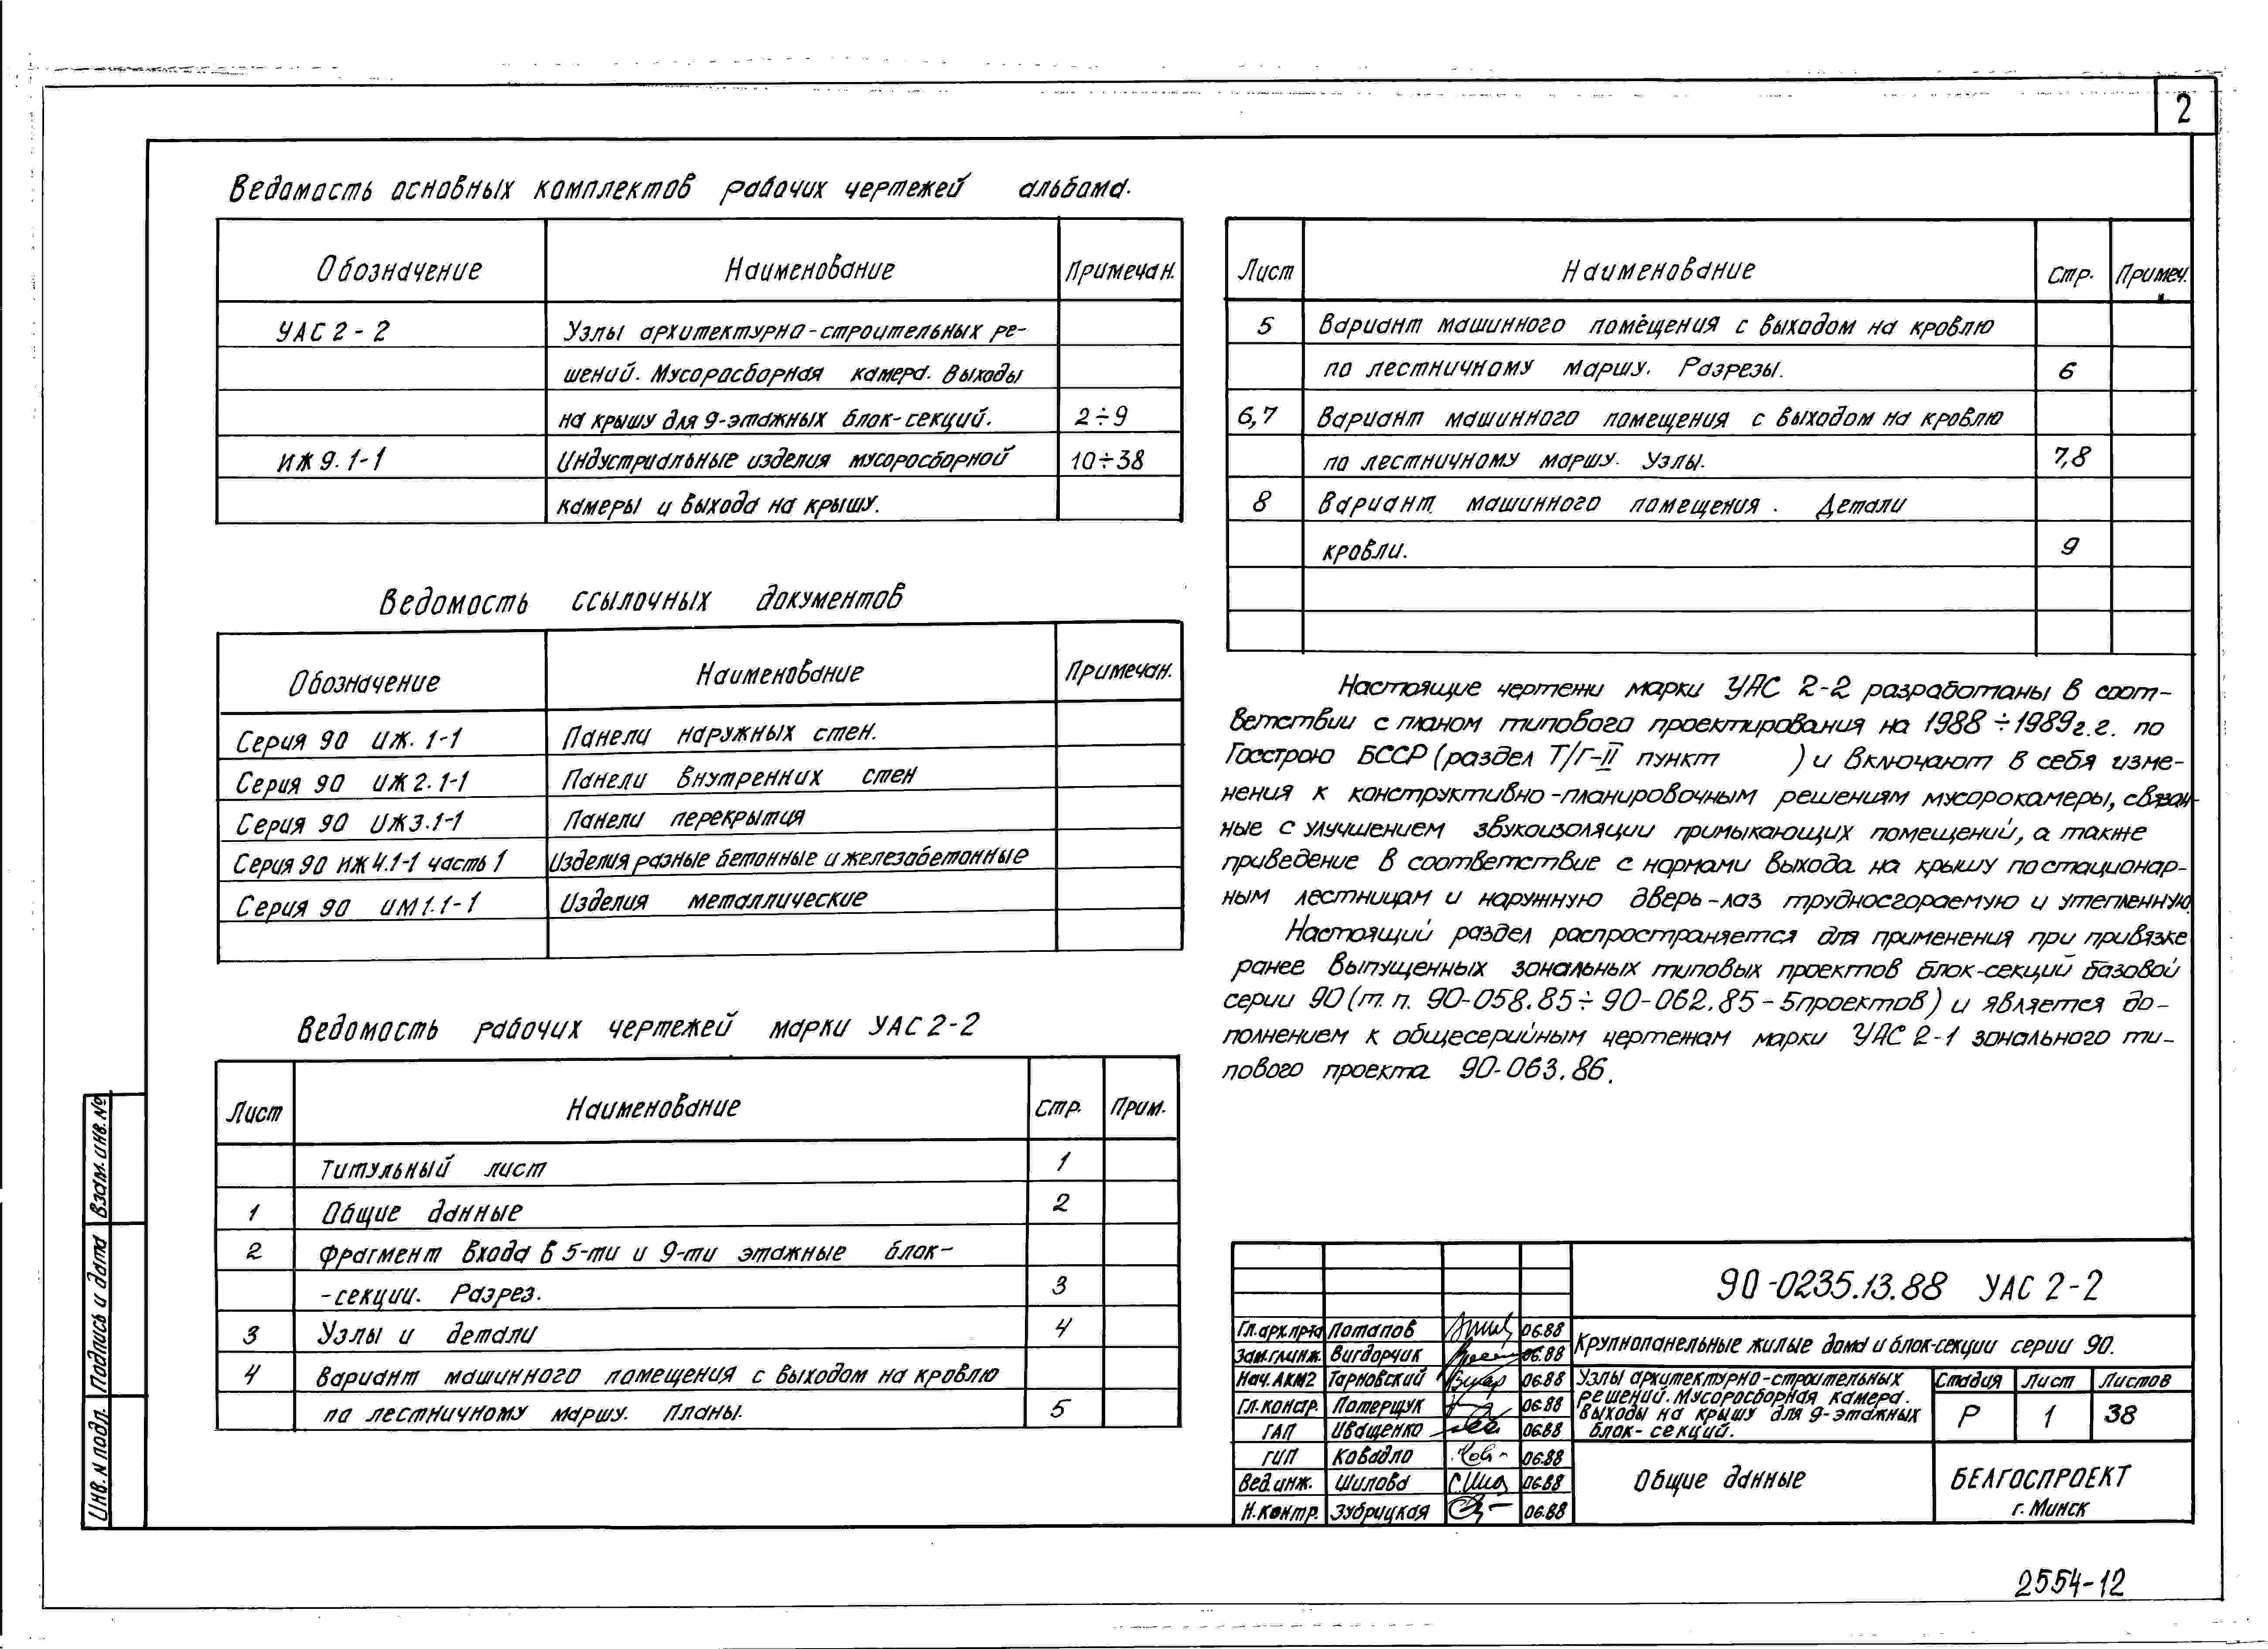 2
Ведомость основных комплектов рабочих чертежей альбома.
Обозначение Наименование Примечан.
УАС 2-2 Узлы архитектурно-строительных ре-
шений. Мусоросборная камера. Выходы
на крышу для 9-этажных блок-секций. 2÷9
ИЖ 9.1-1 Индустриальные изделия мусоросборной 10÷38
камеры и выхода на крышу.
Ведомость ссылочных документов
Обозначение Наименование Примечан.
Серия 90 ИЖ. 1-1 Панели наружных стен.
Серия 90 ИЖ 2.1-1 Панели внутренних стен
Серия 90 ИЖ3.1-1 Панели перекрытия
Серия 90 ИЖ 4.1-1 часть 1 Изделия разные бетонные и железобетонные
Серия 90 ИМ1.1-1 Изделия металлические
Ведомость рабочих чертежей марки УАС 2-2
Лист Наименование Стр. Прим.
Титульный лист 1
1 Общие данные 2
2 Фрагмент входа в 5-ти и 9-ти этажные блок-
-секции. Разрез. 3
3 Узлы и детали 4
4 Вариант машинного помещения с выходом на кровлю
по лестничному маршу. Планы. 5
Лист Наименование Стр. Примеч.
5 Вариант машинного помещения с выходом на кровлю
по лестничному маршу. Разрезы. 6
6,7 Вариант машинного помещения с выходом на кровлю
по лестничному маршу. Узлы. 7,8
8 Вариант машинного помещения. Детали
кровли. 9
Настоящие чертежи марки УАС 2-2 разработаны в соот-
ветствии с планом типового проектирования на 1988÷1989г.г. по
Госстрою БССР (раздел Т/Г-II пункт ) и включают в себя изме-
нения к конструктивно-планировочным решениям мусорокамеры, связан-
ные с улучшением звукоизоляции примыкающих помещений, а также
приведение в соответствие с нормами выхода на крышу по стационар-
ным лестницам и наружную дверь-лаз трудносгораемую и утепленную
Настоящий раздел распространяется для применения при привязке
ранее выпущенных зональных типовых проектов блок-секций базовой
серии 90 (т.п. 90-058.85÷90-062.85-5проектов) и является до-
полнением к общесерийным чертежам марки УАС 2-1 зонального ти-
пового проекта 90-063.86.
90-0235.13.88 УАС 2-2
Гл.арх.пр-та Потапов 06.88
Зам.гл.инж. Вигдорчик 06.88
Нач.АКМ2 Тарновский 06.88
Гл.констр. Потерщук 06.88
ГАП Иващенко 06.88
ГИП Ковадло 06.88
Вед.инж. Шилова 06.88
Н.контр. Зубрицкая 06.88
Крупнопанельные жилые дома и блок-секции серии 90.
Узлы архитектурно-строительных
решений. Мусоросборная камера.
Выходы на крышу для 9-этажных
блок-секций.
Стадия Лист Листов
Р 1 38
Общие данные
БЕЛГОСПРОЕКТ
г. Минск
Взам.инв.№
Подпись и дата
Инв.N подл.
2554-12